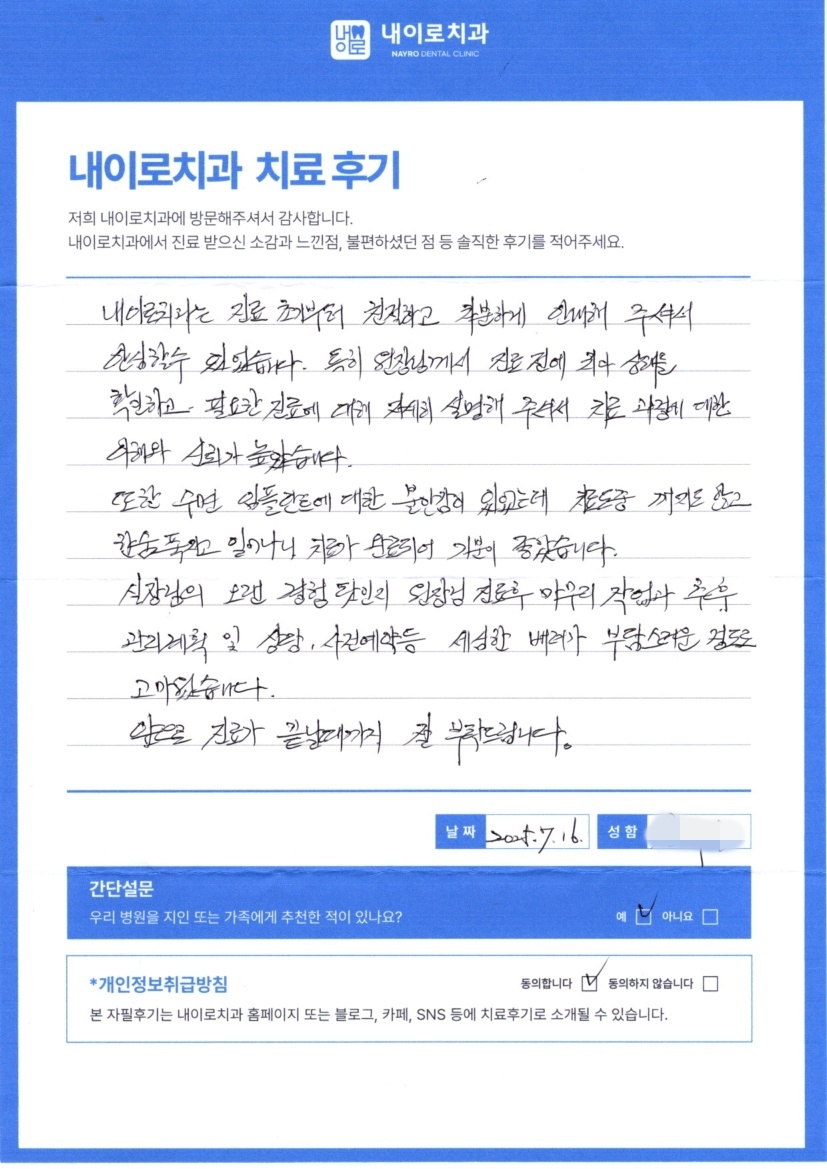 내이로
내이로치과
NAYRO DENTAL CLINIC
내이로치과 치료 후기
저희 내이로치과에 방문해주셔서 감사합니다.
내이로치과에서 진료 받으신 소감과 느낀점, 불편하셨던 점 등 솔직한 후기를 적어주세요.
내이로치과는 진료 초기부터 친절하고 차분하게 안내해 주셔서
안심할수 있었습니다. 특히 원장님께서 진료 전에 치아 상태를
확인하고 필요한 진료에 대해 자세히 설명해 주셔서 치료 과정에 대한
이해와 신뢰가 높았습니다.
또한 수면 임플란트에 대한 불안감이 있었는데 치료도중 깨지도 않고
한숨 푹자고 일어나니 치료가 완료되어 기분이 좋았습니다.
실장님의 오랜 경험 탓인지 원장님 진료후 마무리 작업과 추후
관리계획 및 상담, 사전예약등 세심한 배려가 부담스러운 정도로
고마웠습니다.
앞으로 진료가 끝날때까지 잘 부탁드립니다.
날짜 2025.7.16. 성함
간단설문
우리 병원을 지인 또는 가족에게 추천한 적이 있나요? 예 아니요
*개인정보취급방침 동의합니다 동의하지 않습니다
본 자필후기는 내이로치과 홈페이지 또는 블로그, 카페, SNS 등에 치료후기로 소개될 수 있습니다.